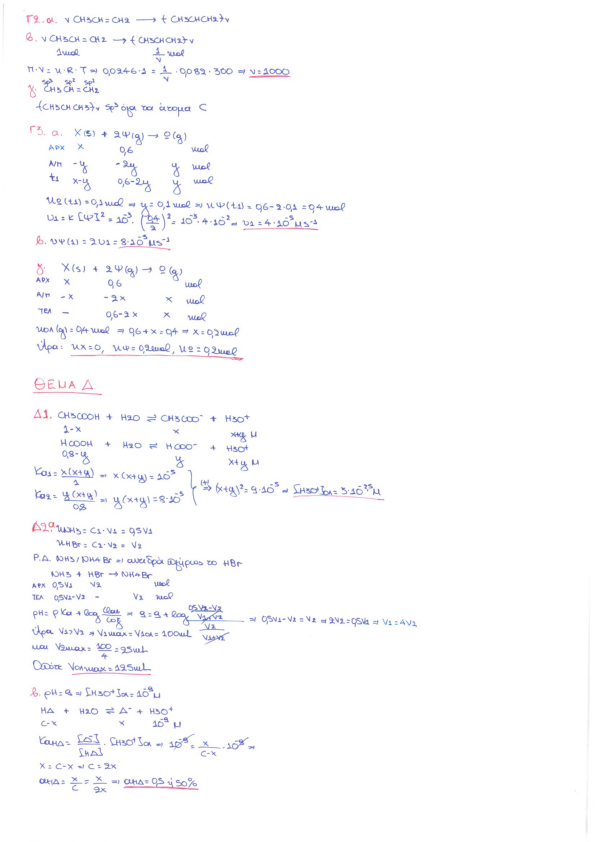 Γ2. α. ν CH3CH=CH2 ⟶ {CH3CHCH2}ν
β. ν CH3CH=CH2 ⟶ {CH3CHCH2}ν
1mol 1/ν mol
Π·V = n·R·T ⇒ 0,0246·1 = 1/ν · 0,082·300 ⇒ ν=1000
sp³ sp² sp²
γ. CH3CH=CH2
{CH3CHCH3}ν sp³ όλα τα άτομα C
Γ3. α. X(s) + 2Ψ(g) → Ω(g)
ΑΡΧ x 0,6 mol
Α/Π -y -2y y mol
t1 x-y 0,6-2y y mol
nΩ(t1)=0,1mol ⇒ y=0,1mol ⇒ nΨ(t1)=0,6-2·0,1=0,4mol
υ1=k[Ψ]² = 10⁻³·(0,4/2)² = 10⁻³·4·10⁻² ⇒ υ1=4·10⁻⁵ M s⁻¹
β. υΨ(1) = 2υ1 = 8·10⁻⁵ M s⁻¹
γ. X(s) + 2Ψ(g) → Ω(g)
ΑΡΧ x 0,6 mol
Α/Π -x -2x x mol
ΤΕΛ - 0,6-2x x mol
nολ(g)=0,4mol ⇒ 0,6+x=0,4 ⇒ x=0,2mol
Άρα: nX=0, nΨ=0,2mol, nΩ=0,2mol
ΘΕΜΑ Δ
Δ1. CH3COOH + H2O ⇌ CH3COO⁻ + H3O⁺
1-x x x+y M
HCOOH + H2O ⇌ HCOO⁻ + H3O⁺
0,8-y y x+y M
Ka1 = x(x+y)/1 ⇒ x(x+y)=10⁻⁵
Ka2 = y(x+y)/0,8 ⇒ y(x+y)=8·10⁻⁵
(+) ⇒ (x+y)²=9·10⁻⁵ ⇒ [H3O⁺]ολ=3·10⁻²·⁵ M
Δ2. α. nNH3 = C1·V1 = 0,5V1
nHBr = C2·V2 = V2
Ρ.Δ. NH3/NH4Br ⇒ αντιδρά πλήρως το HBr
NH3 + HBr → NH4Br
ΑΡΧ 0,5V1 V2 mol
ΤΕΛ 0,5V1-V2 - V2 mol
pH = pKa + log Cβασ/Cοξ ⇒ 9=9+log (0,5V1-V2 / V1+V2) / (V2 / V1+V2) ⇒ 0,5V1-V2=V2 ⇒ 2V2=0,5V1 ⇒ V1=4V2
Άρα V1>V2 ⇒ V1max=V1ολ=100mL
και V2max = 100/4 = 25mL
Οπότε Vολmax=125mL
β. pH=9 ⇒ [H3O⁺]ολ=10⁻⁹ M
HΔ + H2O ⇌ Δ⁻ + H3O⁺
C-x x 10⁻⁹ M
KaHΔ = [Δ⁻]/[HΔ] · [H3O⁺]ολ ⇒ 10⁻⁹ = x/C-x · 10⁻⁹ ⇒
x=C-x ⇒ C=2x
αHΔ = x/C = x/2x ⇒ αHΔ=0,5 ή 50%